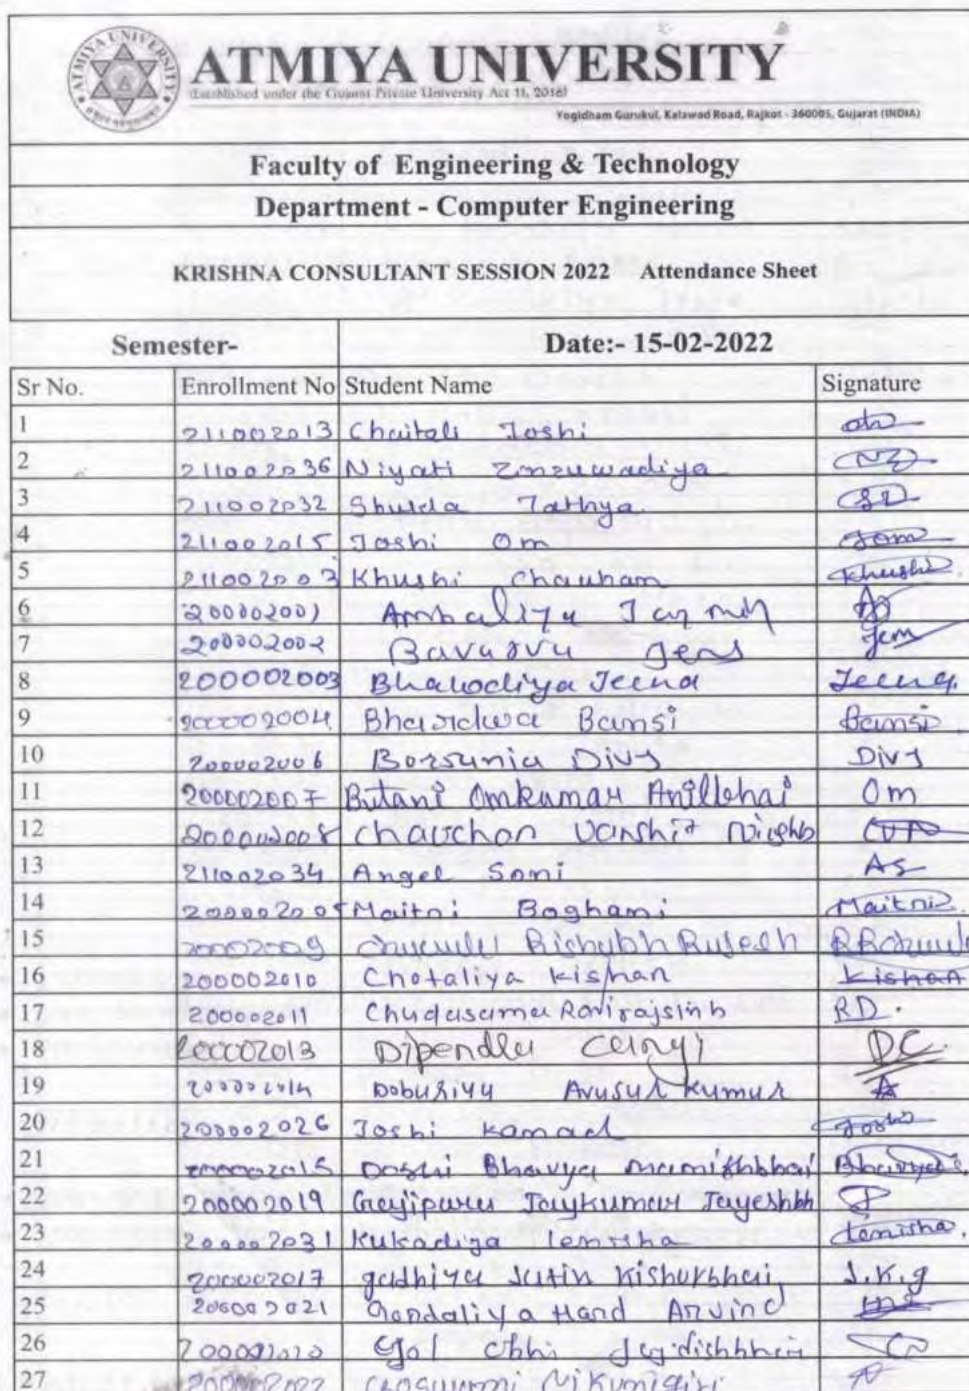 ATMIYA UNIVERSITY
ATMIYA UNIVERSITY
(Established under the Gujarat Private University Act 11, 2018)
Yogidham Gurukul, Kalawad Road, Rajkot - 360005, Gujarat (INDIA)
Faculty of Engineering & Technology
Department - Computer Engineering
KRISHNA CONSULTANT SESSION 2022 Attendance Sheet
Semester- Date:- 15-02-2022
Sr No. Enrollment No Student Name Signature
1 211002013 Chaitali Joshi
2 211002036 Niyati Zinzuwadiya NZ
3 211002032 Shukla Tathya
4 211002015 Joshi Om Jom
5 211002003 Khushi Chauham Khushi
6 200002001 Ambaliya
7 200002002 Bavarva Jens Jem
8 200002003 Bhalodiya Jeena Jeena
9 200002004 Bharadwa Bansi Bansi
10 200002006 Borsania Divy Divy
11 200002007 Butani Omkumar Anilbhai Om
12 200002008 Chauchan Vanshit
13 211002034 Angel Soni AS
14 200002005 Maitri Boghani Maitri
15 200002009 Rishabh Rajesh
16 200002010 Chotaliya Kishan Kishan
17 200002011 Chudasama Ravirajsinh RD.
18 200002013 Dipendra DC
19 200002014 Dobariya Avasar Kumar
20 200002026 Joshi Kamad Joshi
21 200002015 Doshi Bhavya Manishbhai Bhavya
22 200002019 Gajipara Jaykumar Jayeshbh
23 200002031 Kukadiya Tanisha Tanisha
24 200002017 gadhiya Jatin Kishorbhai J.K.g
25 200002021 Gondaliya Hard Arvind
26 200002020 Gol Jagdishbhai
27 200002022 Goswami